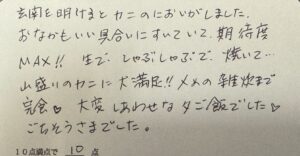 玄関を明けるとカニのにおいがしました。
おなかもいい具合いにすいていて、期待度
MAX!! 生で、しゃぶしゃぶで、焼いて…
山盛りのカニに大満足!! 〆の雑炊まで
完食♡ 大変しあわせな夕ご飯でした♡
ごちそうさまでした。
10点満点で 10 点